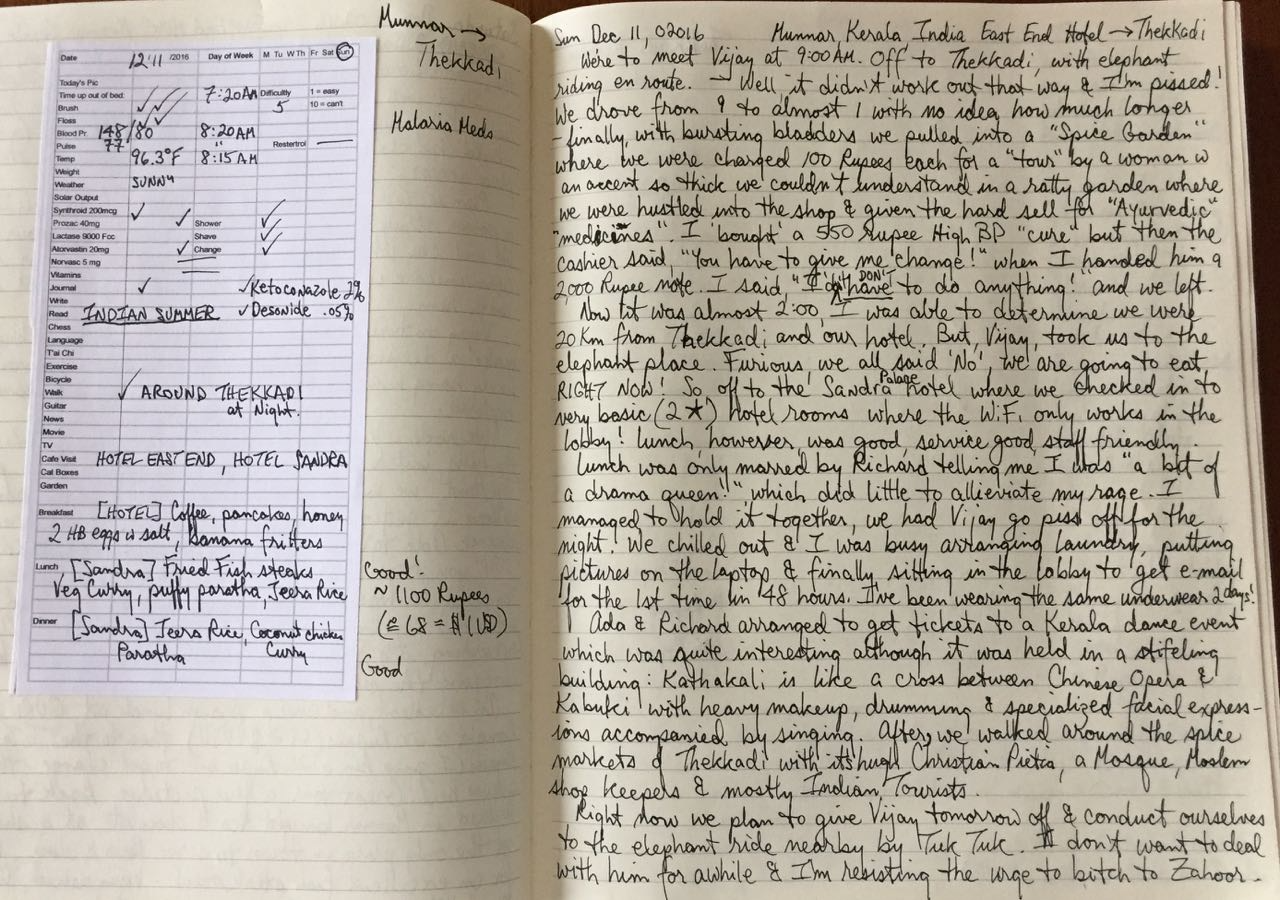 Munnar →
Thekkadi
Malaria Meds
Date 12/11 /2016 Day of Week M Tu W Th Fr Sat Sun
Today's Pic
Time up out of bed: 7:20AM Difficulty 1 = easy
Brush ✓✓ 5 10 = can't
Floss ✓✓
Blood Pr. 148/80 8:20AM
Pulse 77 " Restertrol —
Temp 96.3°F 8:15AM
Weight
Weather SUNNY
Solar Output
Synthroid 200mcg ✓
Prozac 40mg ✓ Shower ✓
Lactase 9000 Fcc Shave ✓
Atorvastin 20mg ✓ Change ✓
Norvasc 5 mg
Vitamins
Journal ✓ ✓Ketoconazole 2%
Write
Read INDIAN SUMMER ✓ Desonide .05%
Chess
Language
T'ai Chi
Exercise
Bicycle
Walk ✓ AROUND THEKKADI
Guitar at Night.
News
Movie
TV
Cafe Visit HOTEL EAST END, HOTEL SANDRA
Cal Boxes
Garden
Breakfast [HOTEL] Coffee, pancakes, honey
2 HB eggs w salt, banana fritters
Lunch [Sandra] Fried Fish steaks
Veg Curry, puffy paratha, Jeera Rice
Dinner [Sandra] Jeera Rice, Coconut chicken
Paratha Curry
Good!
~ 1100 Rupees
(@ 68 = $ US)
Good
Sun Dec 11, 02016 Munnar Kerala India East End Hotel → Thekkadi
We're to meet Vijay at 9:00AM. Off to Thekkadi, with elephant
riding en route. → Well, it didn't work out that way & I'm pissed!
We drove from 9 to almost 1 with no idea how much longer
- finally, with bursting bladders we pulled into a "Spice Garden"
where we were charged 100 Rupees each for a "tour" by a woman w
an accent so thick we couldn't understand in a ratty garden where
we were hustled into the shop & given the hard sell for "Ayurvedic"
"medicines". I 'bought' a 550 Rupee High BP "cure" but then the
cashier said, "You have to give me change!" when I handed him a
2,000 Rupee note. I said "I DON'T have to do anything!" and we left.
Now tit was almost 2:00, I was able to determine we were
20 Km from Thekkadi and our hotel. But, Vijay, took us to the
elephant place. Furious, we all said 'No', we are going to eat
RIGHT NOW! So, off to the Sandra Palace hotel where we checked in to
very basic (2★) hotel rooms where the WiFi only works in the
lobby! lunch, howerver, was good, service good, staff friendly.
Lunch was only marred by Richard telling me I was "a bit of
a drama queen!" which did little to allieviate my rage. I
managed to hold it together, we had Vijay go piss off for the
night. We chilled out & I was busy arranging laundry, putting
pictures on the laptop & finally sitting in the lobby to get e-mail
for the 1st time in 48 hours. I've been wearing the same underwear 2 days!
Ada & Richard arranged to get tickets to a Kerala dance event
which was quite interesting although it was held in a stifeling
building: Kathakali is like a cross between Chinese Opera &
Kabuki with heavy makeup, drumming & specialized facial express-
ions accompanied by singing. After, we walked around the spice
markets of Thekkadi with it's hugh Christian Pieta, a Mosque, Moslem
shop keepers & mostly Indian Tourists.
Right now we plan to give Vijay tomorrow off & conduct ourselves
to the elephant ride nearby by Tuk Tuk. I don't want to deal
with him for awhile & I'm resisting the urge to bitch to Zahoor.